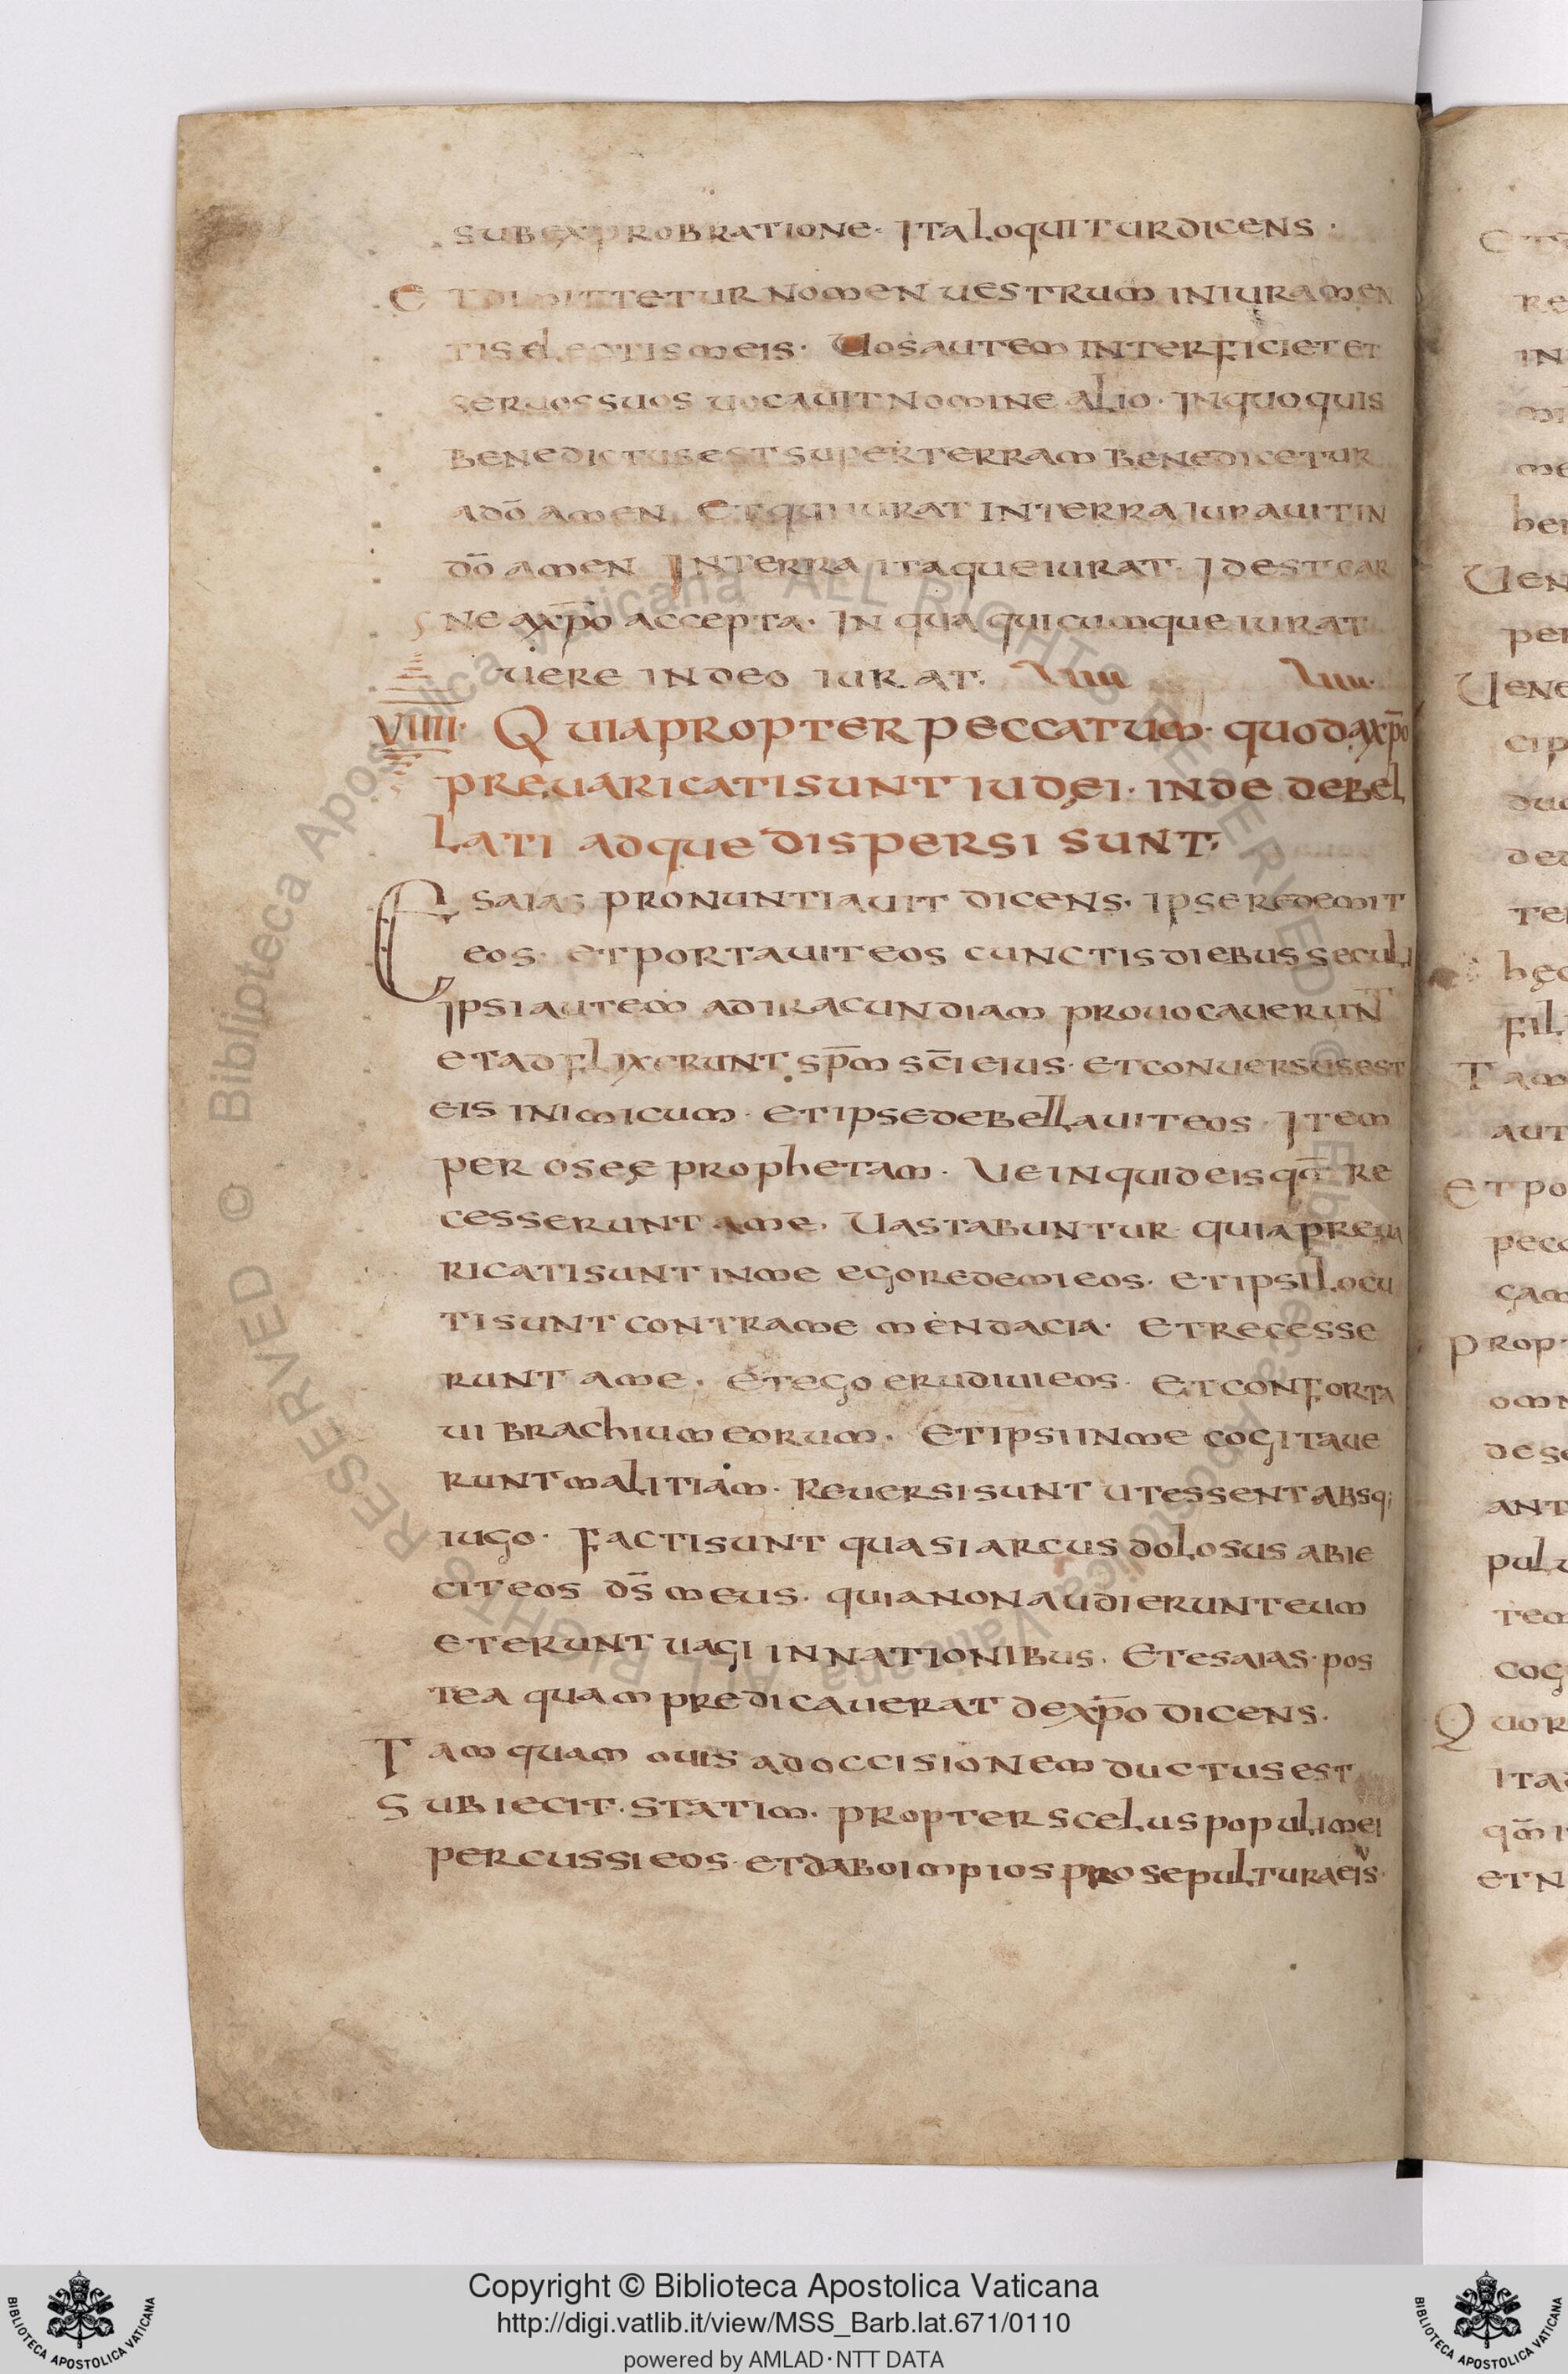 sub exprobratione. Ita loquitur dicens.
Et dimittetur nomen uestrum in iuramen
tis electis meis. Uos autem interficiet et
seruos suos uocauit nomine alio. In quo quis
benedictus est super terram benedicetur
a dō amen. Et qui iurat in terra iurauit in
dō amen. In terra itaque iurat. Id est car
ne a xp̄o accepta. In qua quicumque iurat
uere in deo iurat.
VIIII. Quia propter peccatum. quod a xp̄o
preuaricati sunt iudęi. inde debel
lati adque dispersi sunt.
Esaias pronuntiauit dicens. ipse redemit
eos. et portauit eos cunctis diebus seculi
ipsi autem ad iracundiam prouocauerunt
et adflixerunt sp̄m sc̄i eius. et conuersus est
eis inimicum. et ipse debellauit eos. Item
per oseę prophetam. Ue inquid eis qm̄ re
cesserunt a me. Uastabuntur quia preua
ricati sunt in me ego redemi eos. et ipsi locu
ti sunt contra me mendacia. et recesse
runt a me. et ego erudiui eos. et conforta
ui brachium eorum. et ipsi in me cogitaue
runt malitiam. Reuersi sunt ut essent absq;
iugo. Facti sunt quasi arcus dolosus abie
cit eos ds̄ meus. quia non audierunt eum
et erunt uagi in nationibus. Et esaias. pos
tea quam predicauerat de xp̄o dicens.
Tam quam ouis ad occisionem ductus est
Subiecit. statim. propter scelus populi mei
percussi eos. et dabo impios pro sepultura eius.
Copyright © Biblioteca Apostolica Vaticana
http://digi.vatlib.it/view/MSS_Barb.lat.671/0110
powered by AMLAD·NTT DATA
BIBLIOTECA APOSTOLICA VATICANA
BIBLIOTECA APOSTOLICA VATICANA